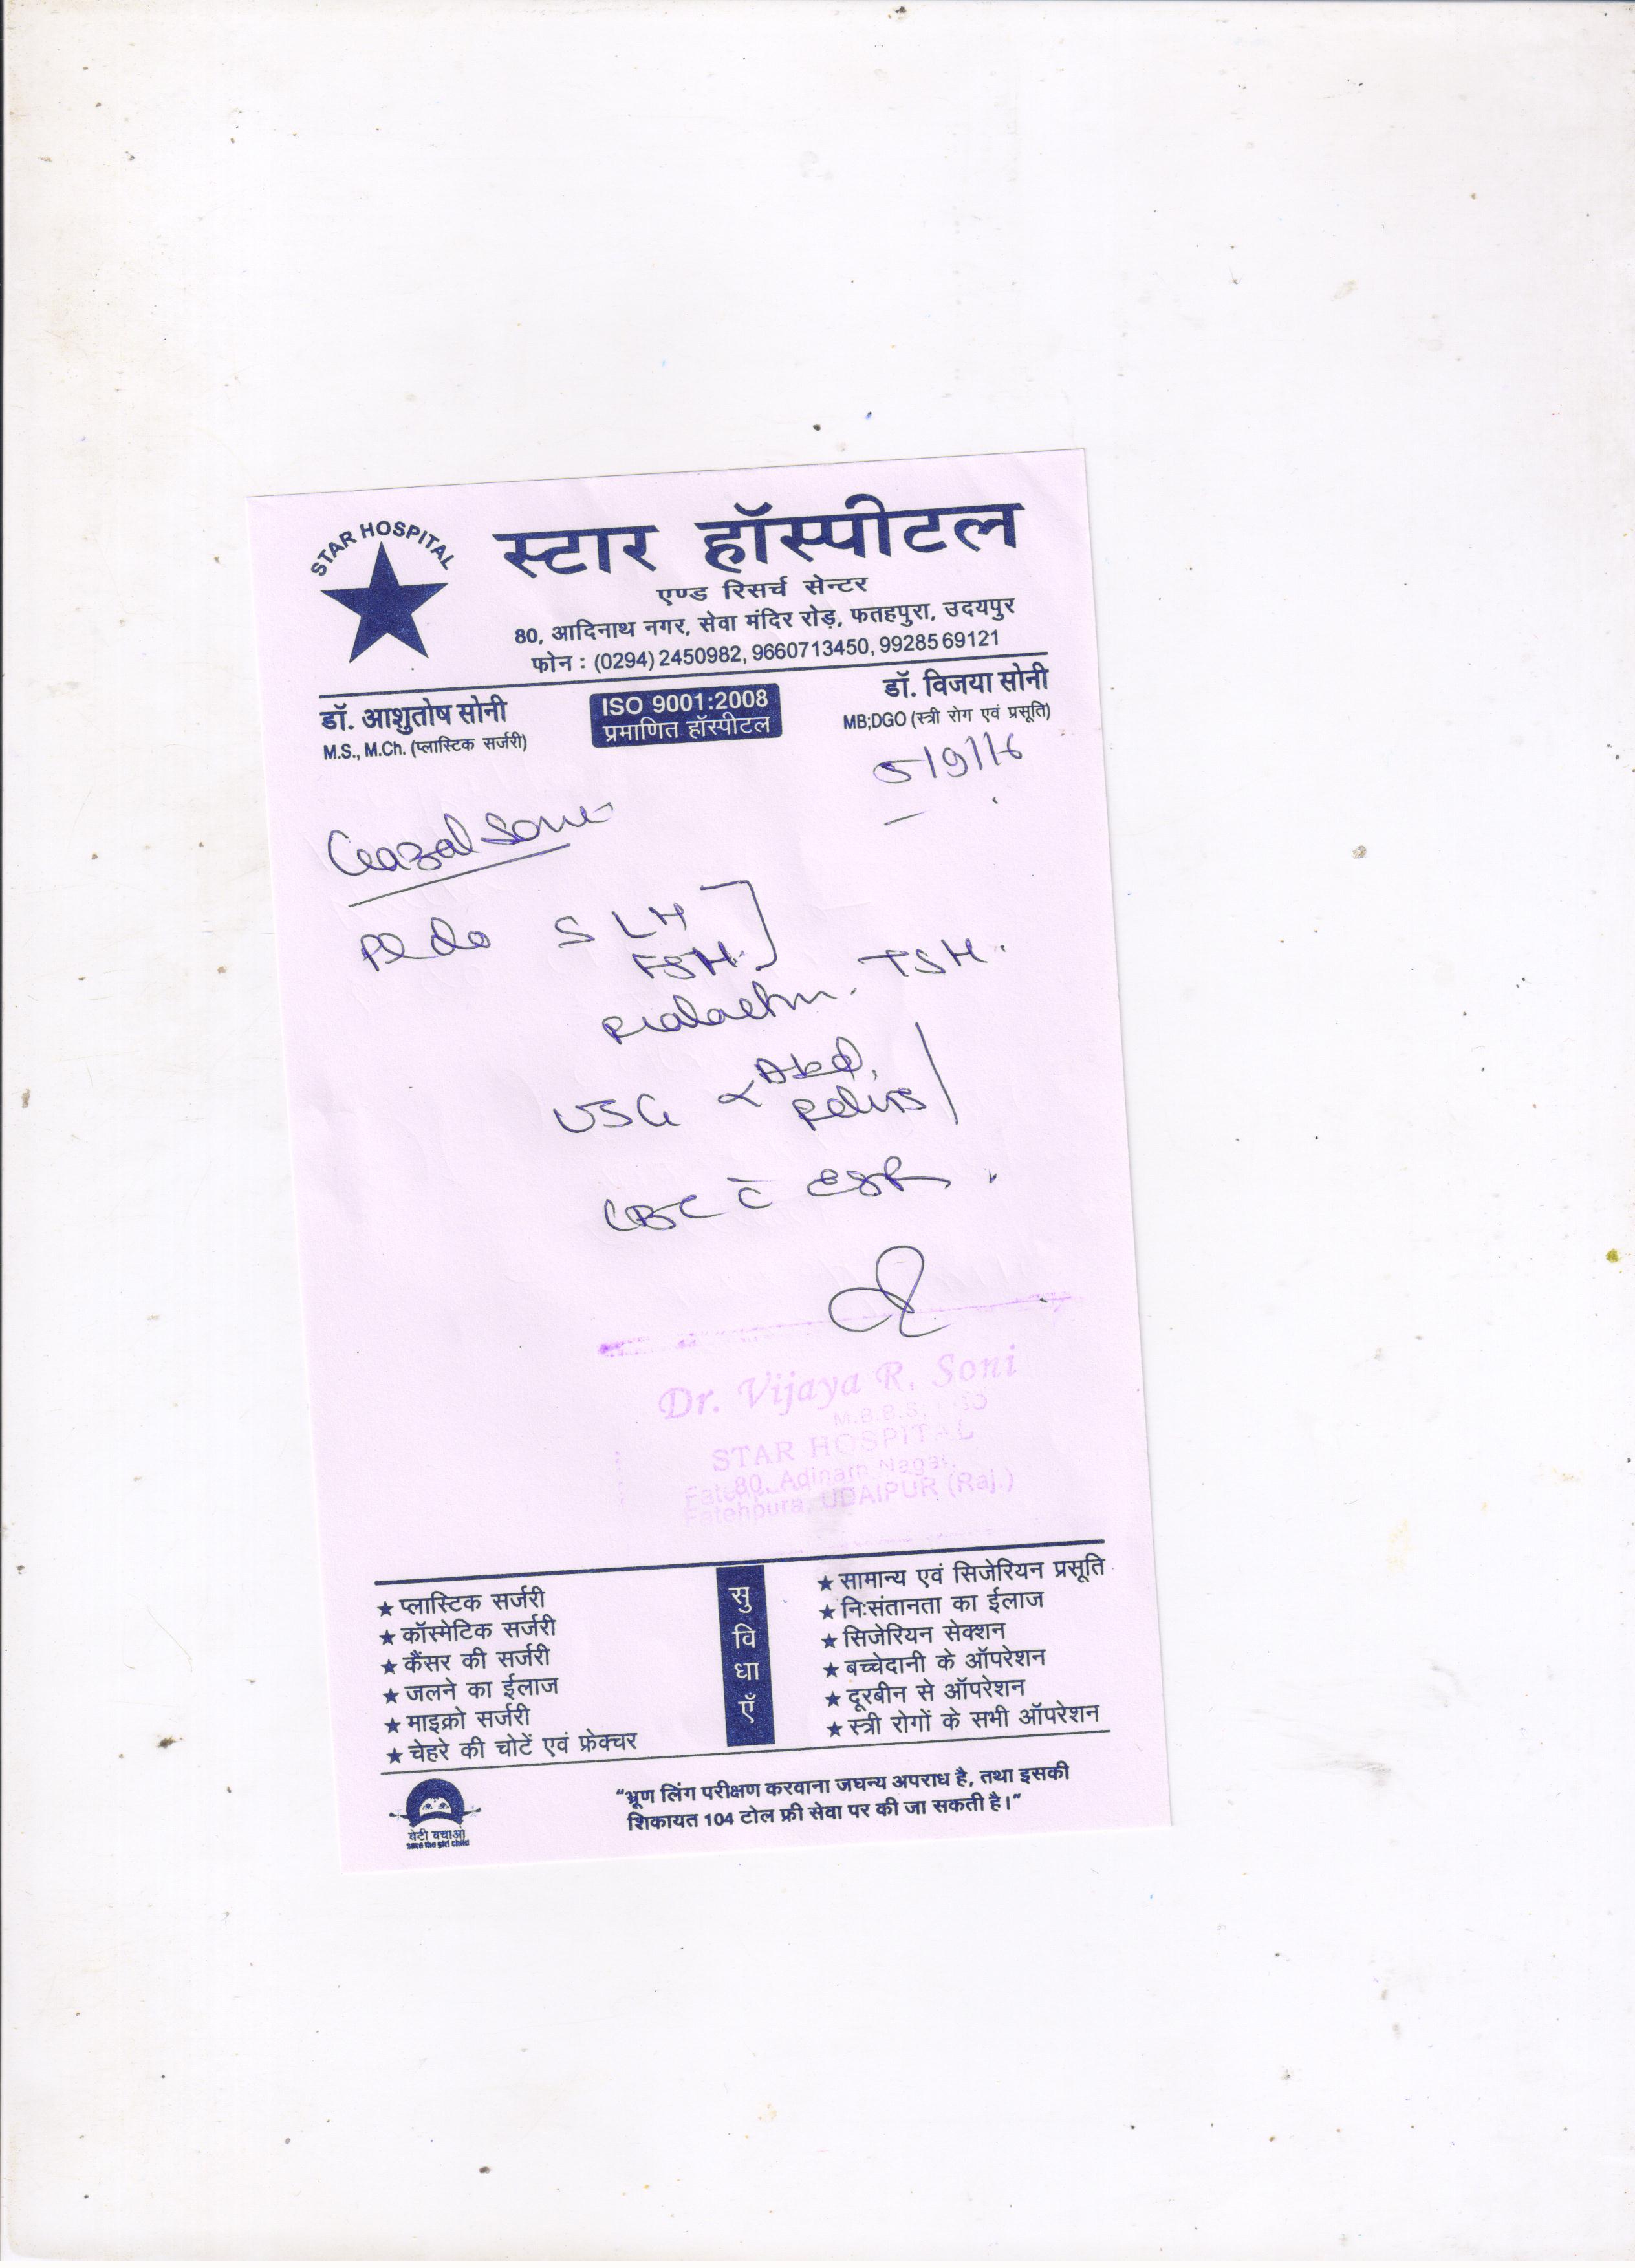 STAR HOSPITAL
स्टार हॉस्पीटल
एण्ड रिसर्च सेन्टर
80, आदिनाथ नगर, सेवा मंदिर रोड़, फतहपुरा, उदयपुर
फोन : (0294) 2450982, 9660713450, 9928569121
डॉ. आशुतोष सोनी
M.S., M.Ch. (प्लास्टिक सर्जरी)
ISO 9001:2008
प्रमाणित हॉस्पीटल
डॉ. विजया सोनी
MB;DGO (स्त्री रोग एवं प्रसूति)
5/9/16
Gazal Soni
Pl do S LH
FSH
Prolactin. TSH.
USG Abd,
Pelvis
CBC c̄ ESR
Dr. Vijaya R. Soni
M.B.B.S;
STAR HOSPITAL
80, Adinath Nagar,
Fatehpura, UDAIPUR (Raj.)
सुविधाएँ
★ प्लास्टिक सर्जरी
★ कॉस्मेटिक सर्जरी
★ कैंसर की सर्जरी
★ जलने का ईलाज
★ माइक्रो सर्जरी
★ चेहरे की चोटें एवं फ्रेक्चर
★ सामान्य एवं सिजेरियन प्रसूति
★ निःसंतानता का ईलाज
★ सिजेरियन सेक्शन
★ बच्चेदानी के ऑपरेशन
★ दूरबीन से ऑपरेशन
★ स्त्री रोगों के सभी ऑपरेशन
बेटी बचाओ
save the girl child
“भ्रूण लिंग परीक्षण करवाना जघन्य अपराध है, तथा इसकी
शिकायत 104 टोल फ्री सेवा पर की जा सकती है।”